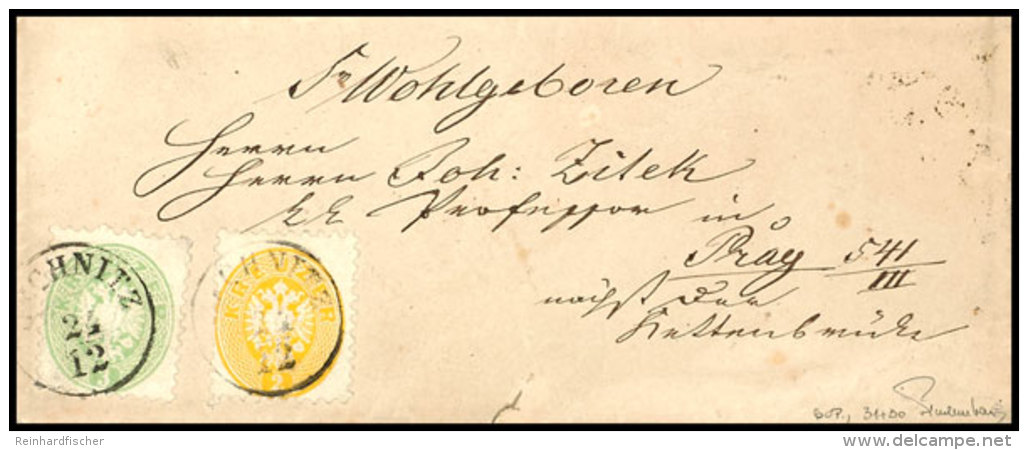 Sr Wohlgeboren
Herrn
Herrn Joh: Zitek
k k Professor in
Prag 541
III
nächst der
Kettenbrücke
CHNITZ
24
12
KREUZER
3
CHNITZ
24
12
KREUZER
2
Reinhardfischer
© delcampe.net